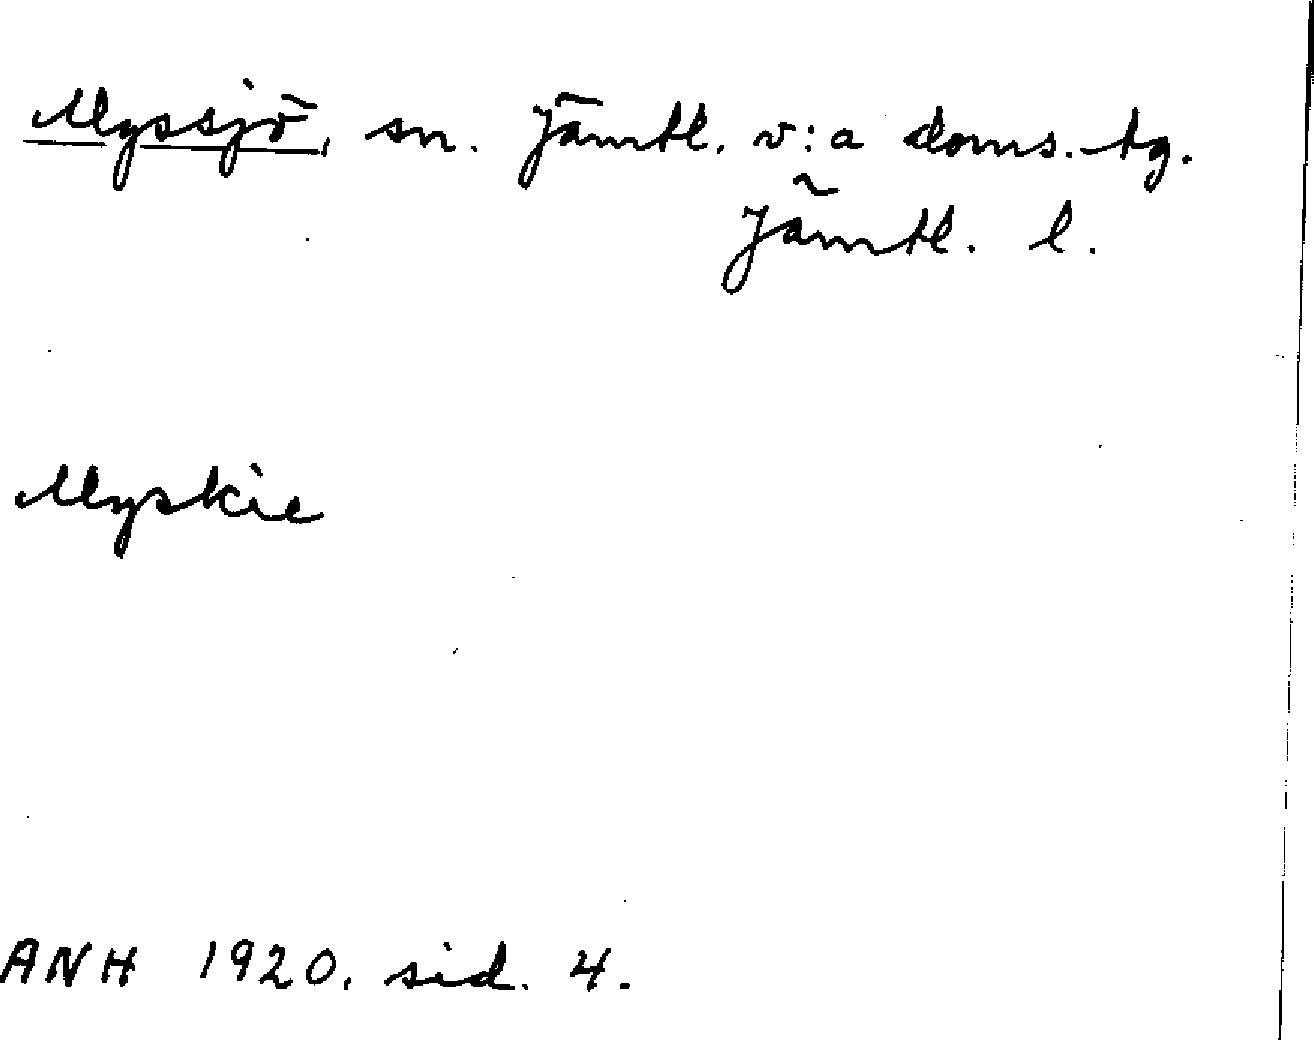 Myssjö, sn. Jämtl. v:a doms.-tg.
Jämtl. l.
Myskie
ANH 1920. sid. 4.